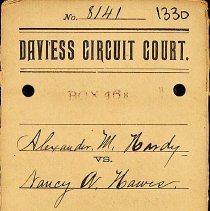 No. 8141 1330
DAVIESS CIRCUIT COURT.
BOX 168
Alexander. M. Hardy
VS.
Nancy A. Hawes.